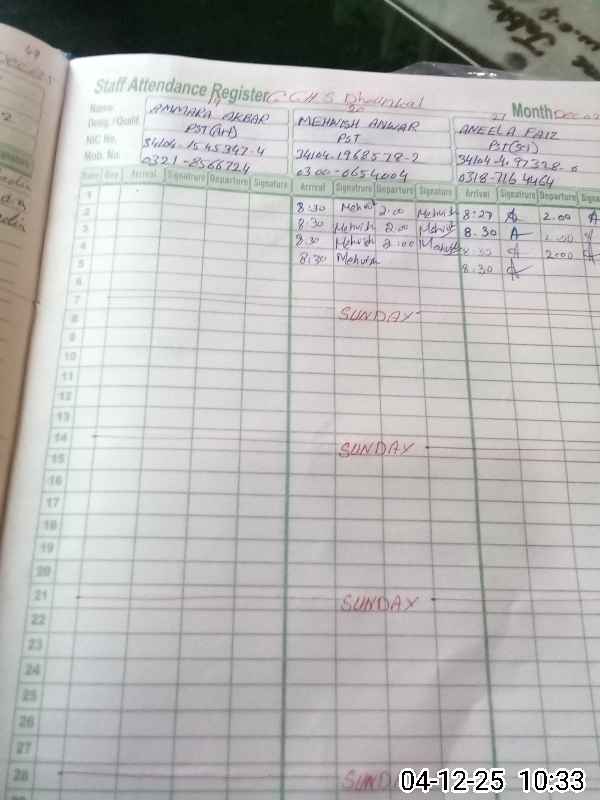 Staff Attendance Register G.G.H.S Dhounkal
Month Dec
Name: 19 AMMARA AKBAR 20 MEHWISH ANWAR 21 ANEELA FAIZ
Desig. / Qualif. PST PST PST
NIC No. 34104-1545347-4 34104-1968578-2
Mob. No. 0321-8566724 0300-0654004 0318-716
Date Day Arrival Signatrure Departure Signature Arrival Signatrure Departure Signature Arrival Signatrure Departure
1 8:30 Mehwish 2:00 Mehwish 8:27 A 2.00 A
2 8:30 Mehwish 2:00 Mehwish 8.30 A
3 8:30 Mehwish 2:00 Mehwish A 2:00
4 8:30 Mehwish 8.30 A
5
6
7 SUNDAY
8
9
10
11
12
13
14 SUNDAY
15
16
17
18
19
20
21 SUNDAY
22
23
24
25
26
27
28 SUNDAY
04-12-25 10:33